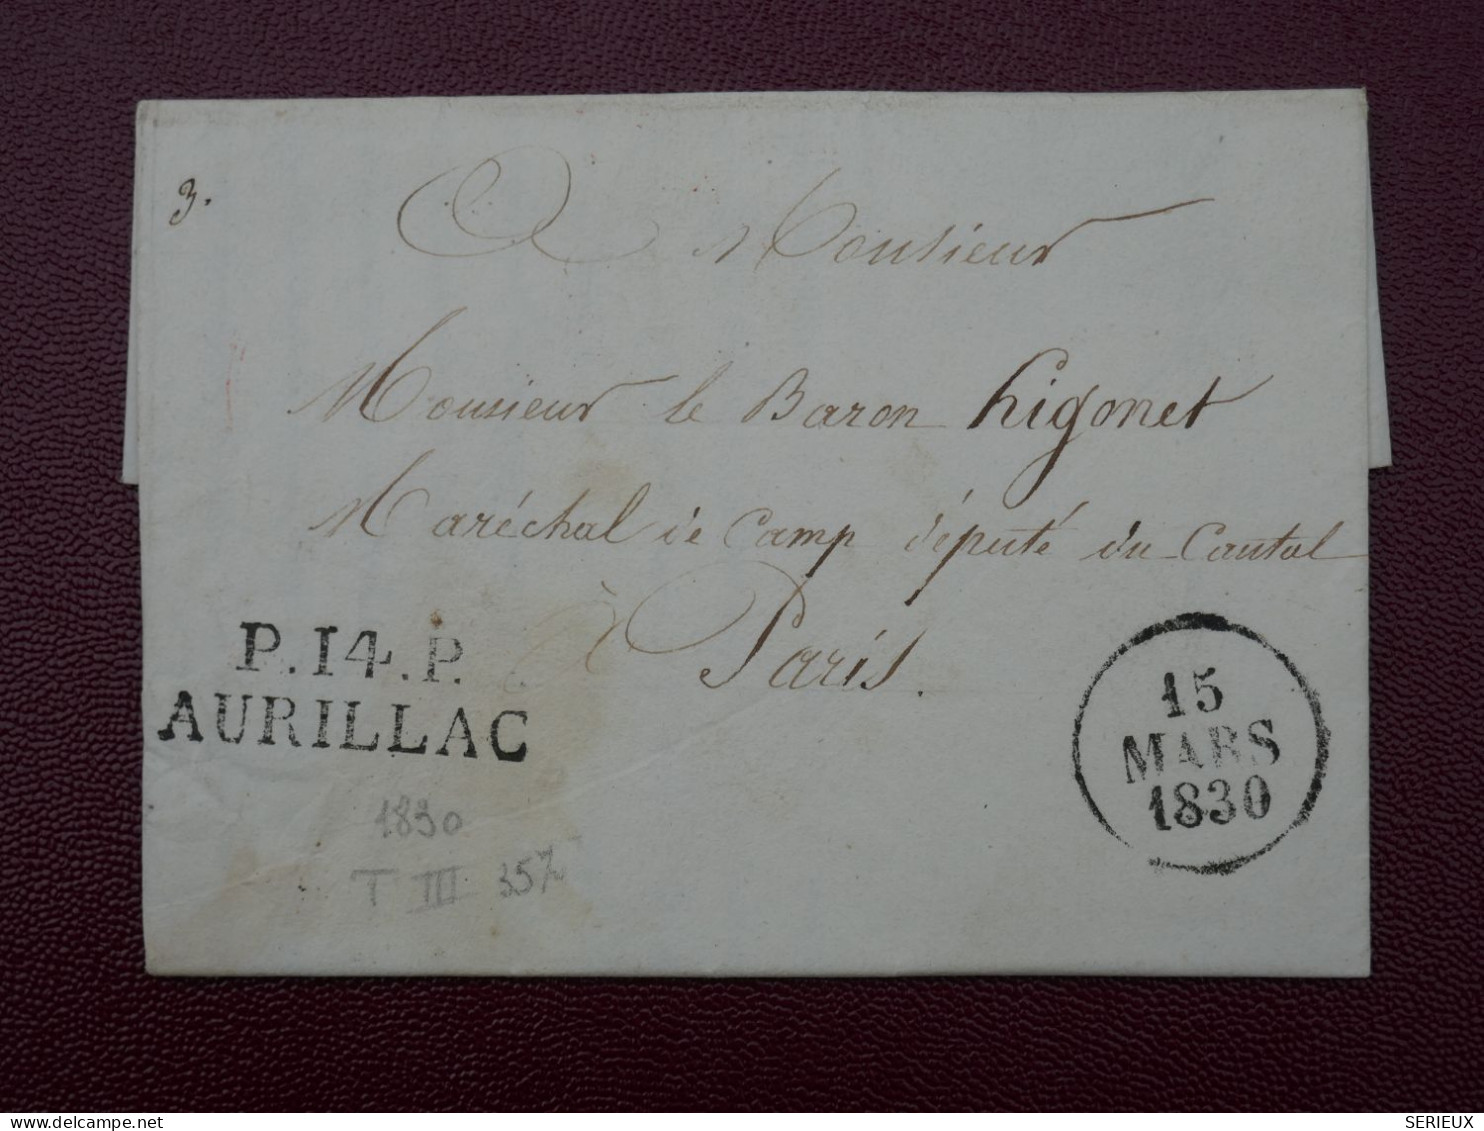 3.
A Monsieur
Monsieur le Baron higonet
Maréchal de Camp député du Cantal
à Paris.
P.14.P.
AURILLAC
15
MARS
1830
1830
T III 357
delcampe.net
SERIEUX